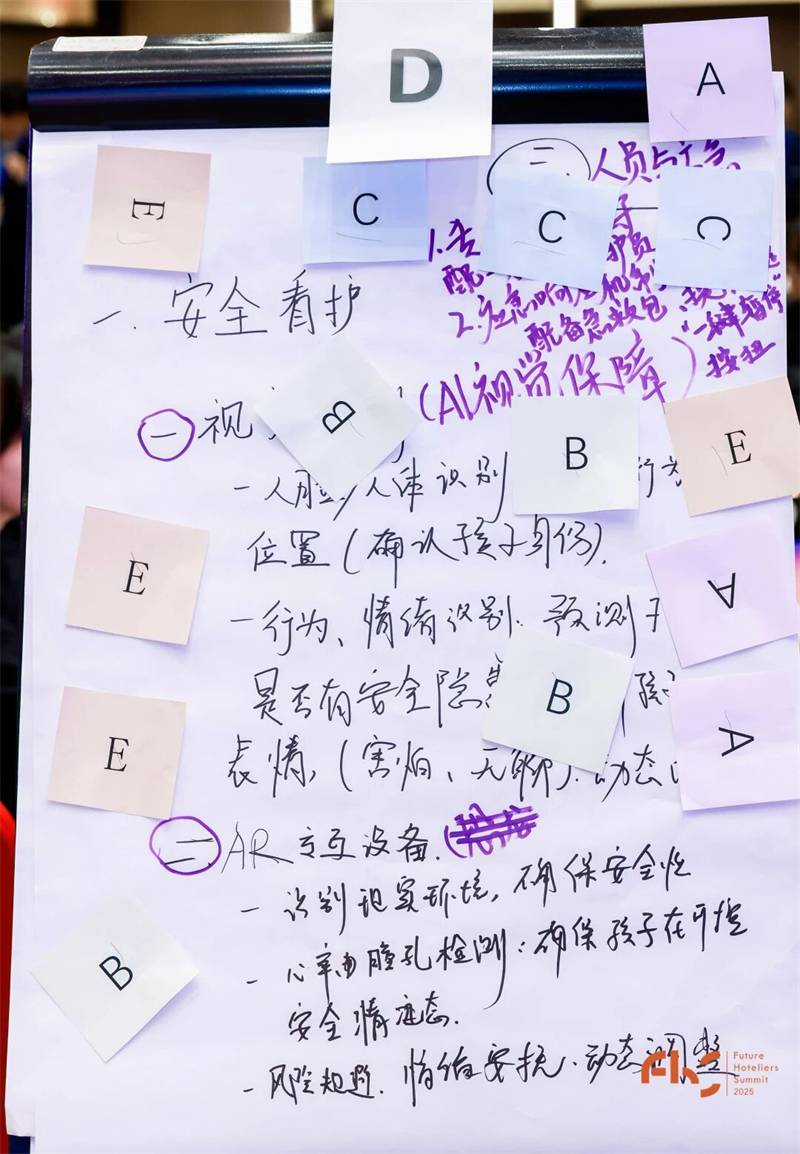 D
A
E
C
C
C
二.
人员与应急
1.
配
护员
2.应急响应机制
配备急救包
"一键暂停"
按扭
一.安全看护
一 视
B
(AI视觉保障)
B
E
-人脸/人体识别
行为
位置(确认孩子身份).
E
A
-行为、情绪识别:预测
是否有安全隐患
B
E
A
表情,(害怕、无聊).动态
二 AR交互设备.
-识别现实环境,确保安全性
B
-心率由瞳孔检测:确保孩子在可控
安全情
-风险规避.情绪安抚.动态调整
FHS
Future
Hoteliers
Summit
2025